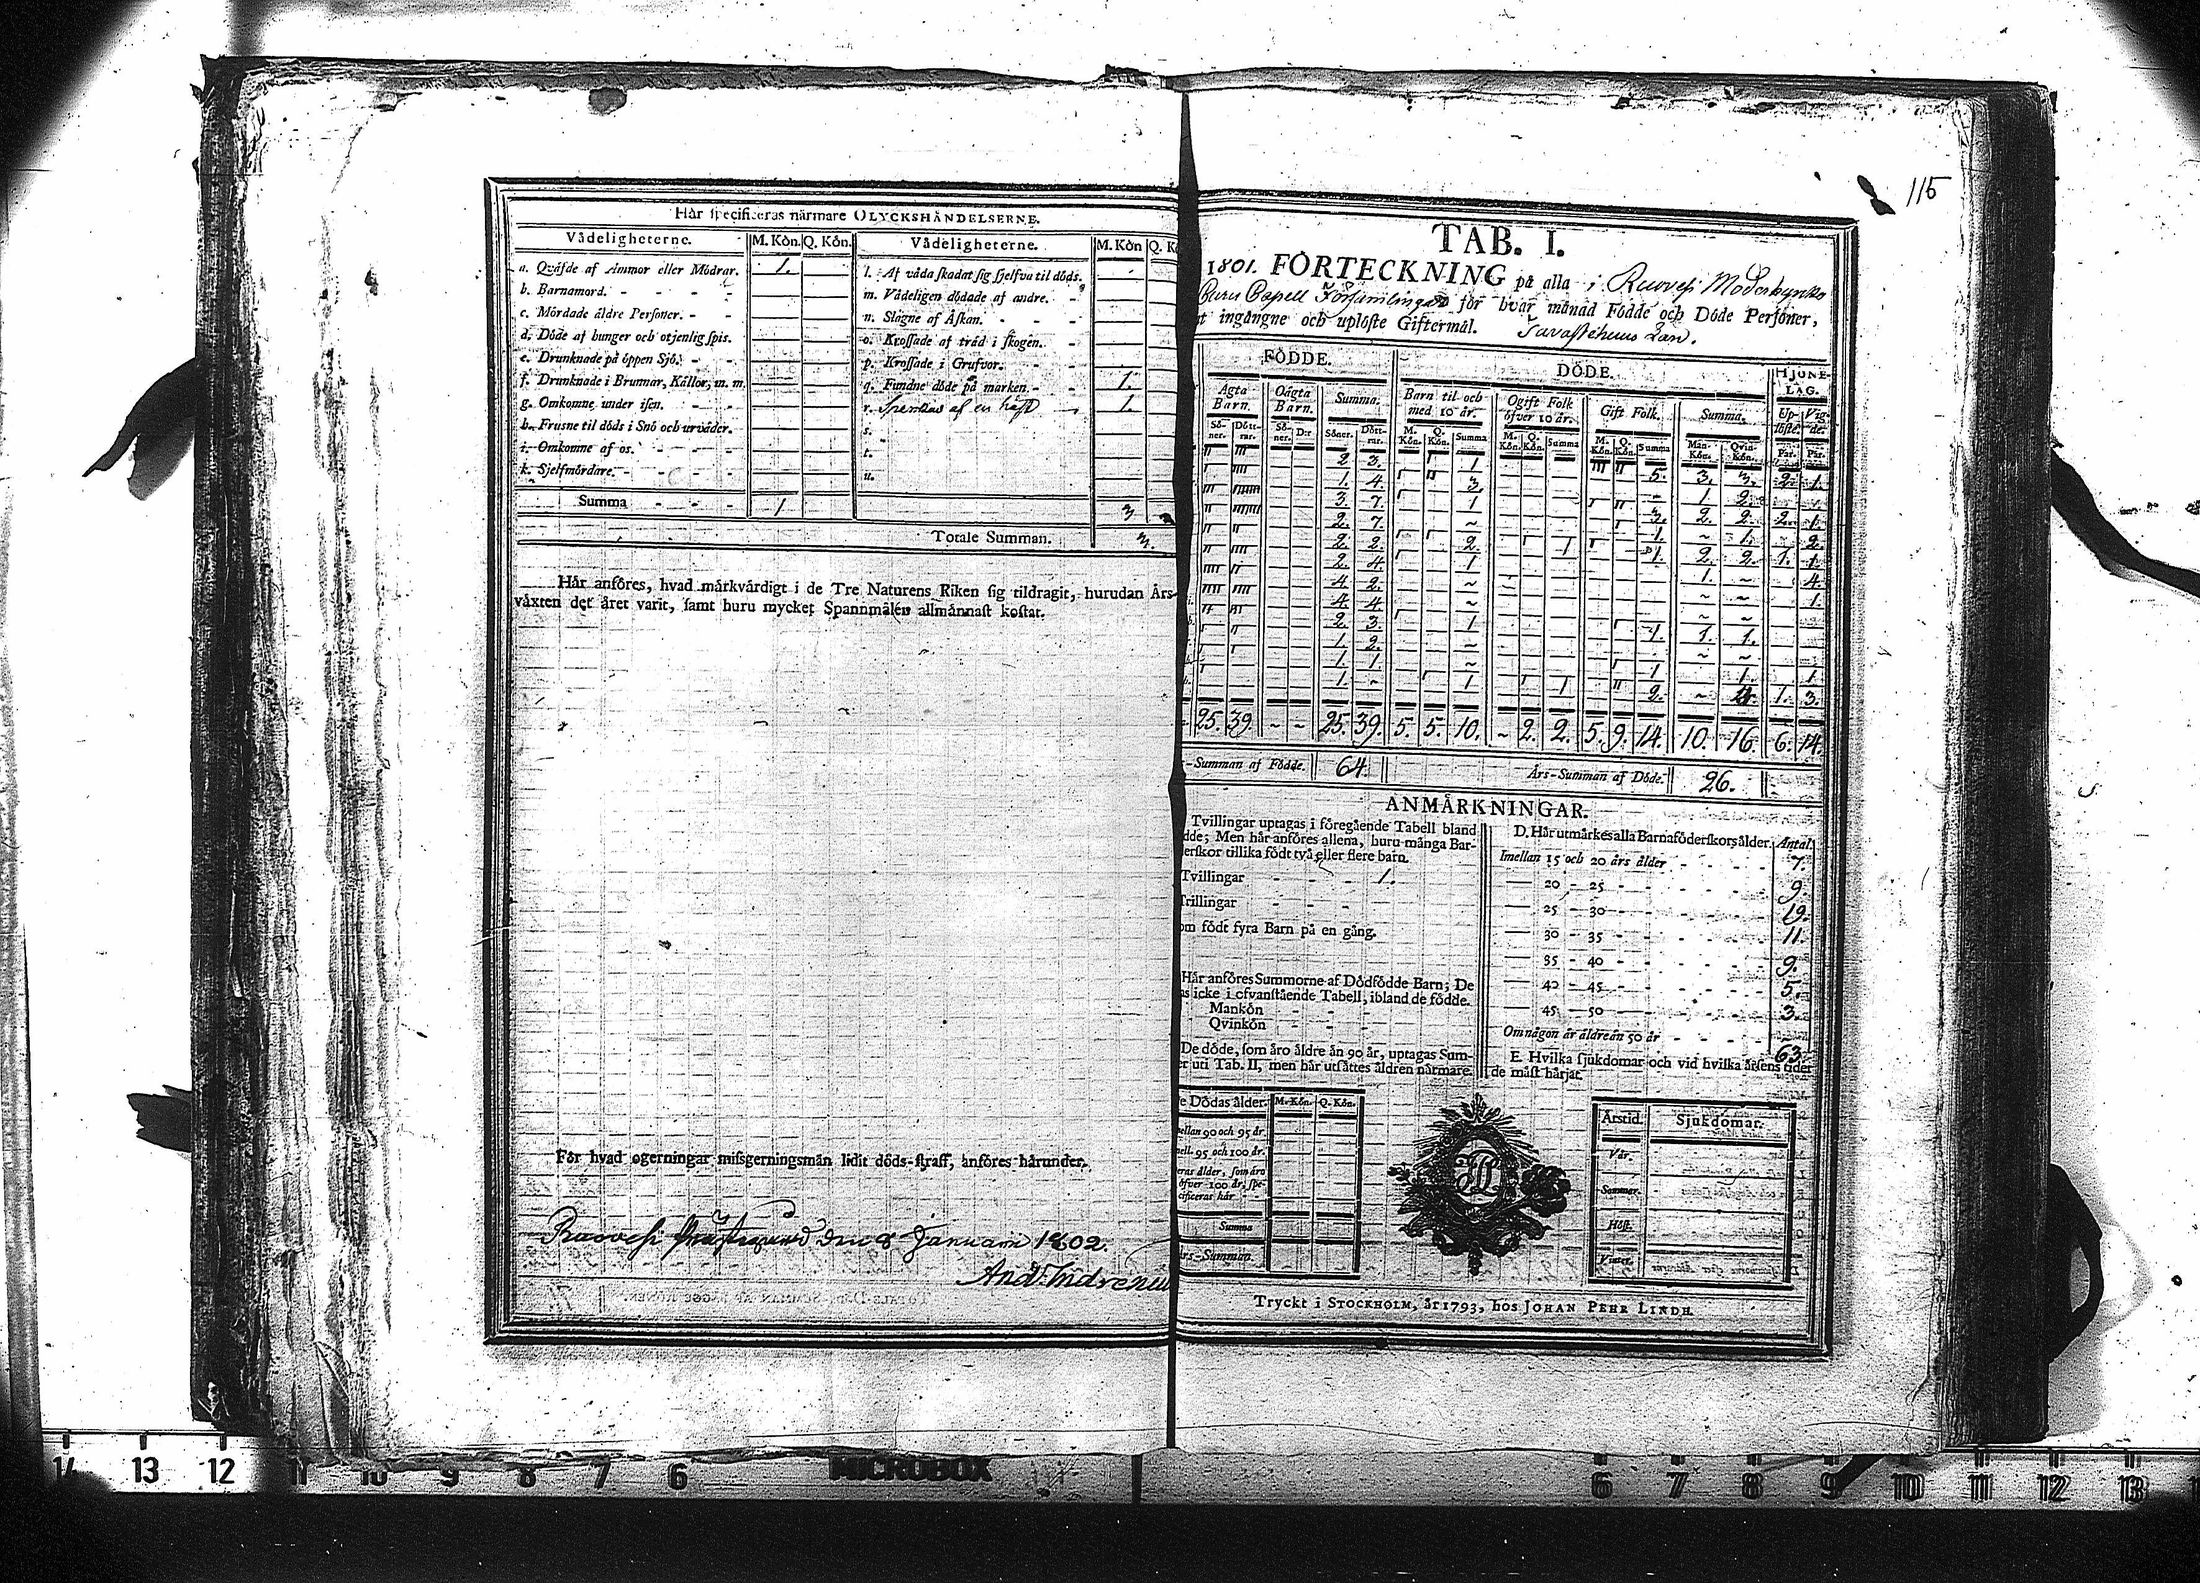 115
Hår specificeras närmare OLYCKSHÄNDELSERNE.
Vådeligheterne. M. Kön. Q. Kön. Vådeligheterne. M. Kön Q. K
a. Qväfde af Ammor eller Mödrar. 1. l. Af våda skadat sig sjelfva til döds.
b. Barnamord. m. Vådeligen dödade af andre.
c. Mördade äldre Personer. n. Slagne af Åskan.
d. Döde af hunger och otjenlig spis. o. Krossade af träd i skogen.
e. Drunknade på öppen Sjö. p. Krossade i Grufvor.
f. Drunknade i Brunnar, Källor, m. m. q. Fundne döde på marken. 1.
g. Omkomne under isen. r. af en häst 1.
h. Frusne til döds i Snö och urväder. s.
i. Omkomne af os. t.
k. Sjelfmördare. u.
Summa 1 3
Totale Summan. 3.
Här anföres, hvad märkvärdigt i de Tre Naturens Riken sig tildragit, hurudan Års-
växten det året varit, samt huru mycket Spannmålen allmännast kostat.
För hvad ogerningar missgerningsmän lidit döds-straff, anföres härunder.
Ruovesi Prästegård den 8 Januarii 1802.
And. Indreniu
TAB. I.
1801. FÖRTECKNING på alla i Ruovesi Moderkyrko
Capell Församlingar för hvar månad Födde och Döde Personer,
t ingångne och uplöste Giftermål. Tavastehuus Län.
FÖDDE. DÖDE. HJONE-
LAG.
Ägta Barn. Oägta Barn. Summa. Barn til och med 10 år. Ogift Folk öfver 10 år. Gift Folk. Summa. Up-löste. Vig-de.
Sö-ner. Dött-rar. Sö-ner. D:r Söner. Dött-rar. M. Kön. Q. Kön. Summa M. Kön. Q. Kön. Summa M. Kön. Q. Kön. Summa Man-Kön. Qvin-Kön. Par. Par.
2. 3. 1 5. 3. 3. 2. 1.
1. 4. 3. 1. 2.
3. 7. 1 3. 2. 2. 2. 1.
2. 7. ~ 1. ~ 1. 2.
2. 2. 2. 1 1. 2. 2. 1. 1.
2. 4. 1 1. ~ 4.
4. 2. ~ ~ 1.
4. 4. ~ ~ ~
2. 3. 1 1. 1. 1.
1. 2. ~ ~ ~
1. 1. ~ 1 1. 1
1. ~ 1 1 2. ~ 4. 1. 3.
25. 39. ~ ~ 25. 39. 5. 5. 10. ~ 2. 2. 5. 9. 14. 10. 16. 6. 14.
-Summan af Födde. 64. Års-Summan af Döde. 26.
ANMÄRKNINGAR.
Tvillingar uptagas i föregående Tabell bland
dde; Men här anföres allena, huru många Bar-
erskor tillika födt två eller flere barn.
Tvillingar 1.
Trillingar
om födt fyra Barn på en gång.
Här anföres Summorne af Dödfödde Barn; De
as icke i ofvanstående Tabell, ibland de födde.
Mankön
Qvinkön
De döde, som äro äldre än 90 år, uptagas Sum-
er uti Tab. II, men här utsättes åldren närmare.
e Dödas ålder. M. Kön. Q. Kön.
ellan 90 och 95 år.
ell. 95 och 100 år.
eras ålder, som äro
öfver 100 år, spe-
cificeras här
Summa
rs-Summan.
D. Här utmärkes alla Barnaföderskors ålder. Antal.
Imellan 15 och 20 års ålder 7.
20 - 25 9.
25 - 30 19.
30 - 35 11.
35 - 40 9.
40 - 45 5.
45 - 50 3.
Om någon är äldre än 50 år
63.
E. Hvilka sjukdomar och vid hvilka årsens tider
de mäst härjat.
Årstid. Sjukdomar.
Vår.
Sommar.
Höst.
Vinter.
Tryckt i STOCKHOLM, år 1793, hos JOHAN PEHR LINDH.
14 13 12 11 10 9 8 7 6 MICROBOX 6 7 8 9 10 11 12 13